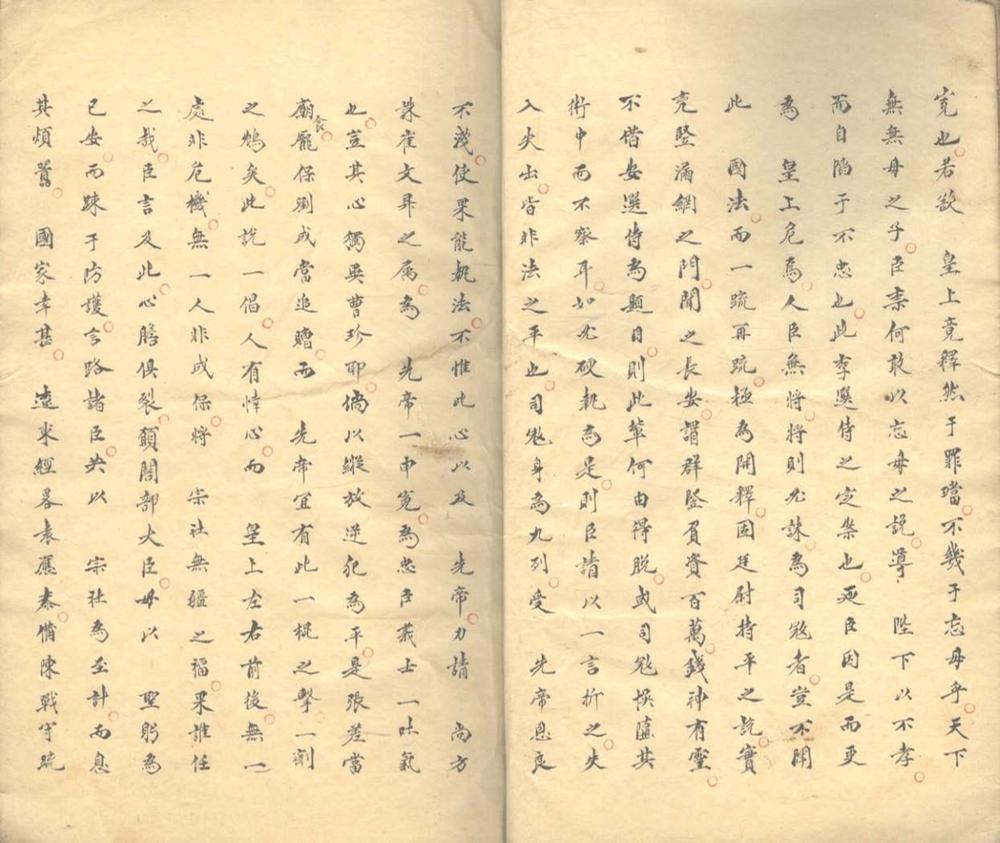 寃也若欲　皇上竟釋然于罪璫不幾于忘母乎天下
無無母之子臣素何敢以忘母之說導　陛下以不孝
而自陷于不忠也此李選侍之定案也迺臣因是而更
為　皇上危焉人臣無將將則必誅為司寇者豈不聞
此　國法而一疏再疏極為開釋因廷尉持平之說實
兇豎漏網之門聞之長安謂群豎負資百萬錢神有靈
不借安選侍為題目則此輩何由得脫或司寇悞墮其
術中而不察耳如必硬執為是則臣請以一言折之失
入失出皆非法之平也司寇身為九列受　先帝恩良
不淺使果能執法不惟此心以及　先帝力請　尚方
誅崔文昇之屬為　先帝一申寃為忠臣義士一吐氣
也豈其心獨異曹珍耶倘以縱放逆犯為平是張差當
廟食龐保劉成當追贈而　先帝宜有此一棍之擊一劑
之鴆矣此說一倡人有悻心而　皇上左右前後無一
處非危機無一人非成保將　宗社無疆之福果誰任
之哉臣言及此心膽俱裂願閣部大臣毋以　聖躬為
已安而疎于防護言路諸臣共以　宗社為至計而息
其煩囂　國家幸甚　遼東經畧袁應泰備陳戰守疏